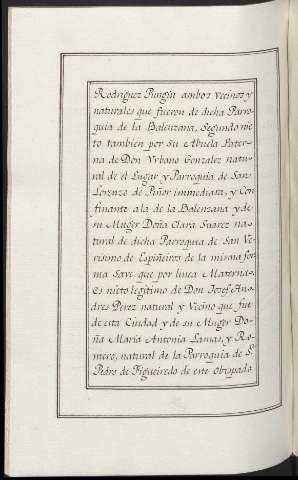 Rodriguez Pungin ambos Vecinos y
naturales que fueron de dicha Parro-
quia de la Balenzana, Segundo nie-
to tambien por su Abuela Pater-
na de Don Vrbano Gonzalez natu-
ral de el Lugar y Parroquia de San
Lorenzo de Piñor immediata, y Con-
finante a la de la Balenzana y de
su Muger Doña Clara Suarez na-
tural de dicha Parroquia de San Ve-
risimo de Espiñeiros de la misma for-
ma Save que por linea Materna
es nieto legitimo de Don Josef An-
dres Perez natural y Vecino que fue
de esta Ciudad y de su Muger Do-
ña Maria Antonia Lamas, y Ro-
mero, natural de la Parroquia de S.
Pedro de Figueiredo de este Obispado